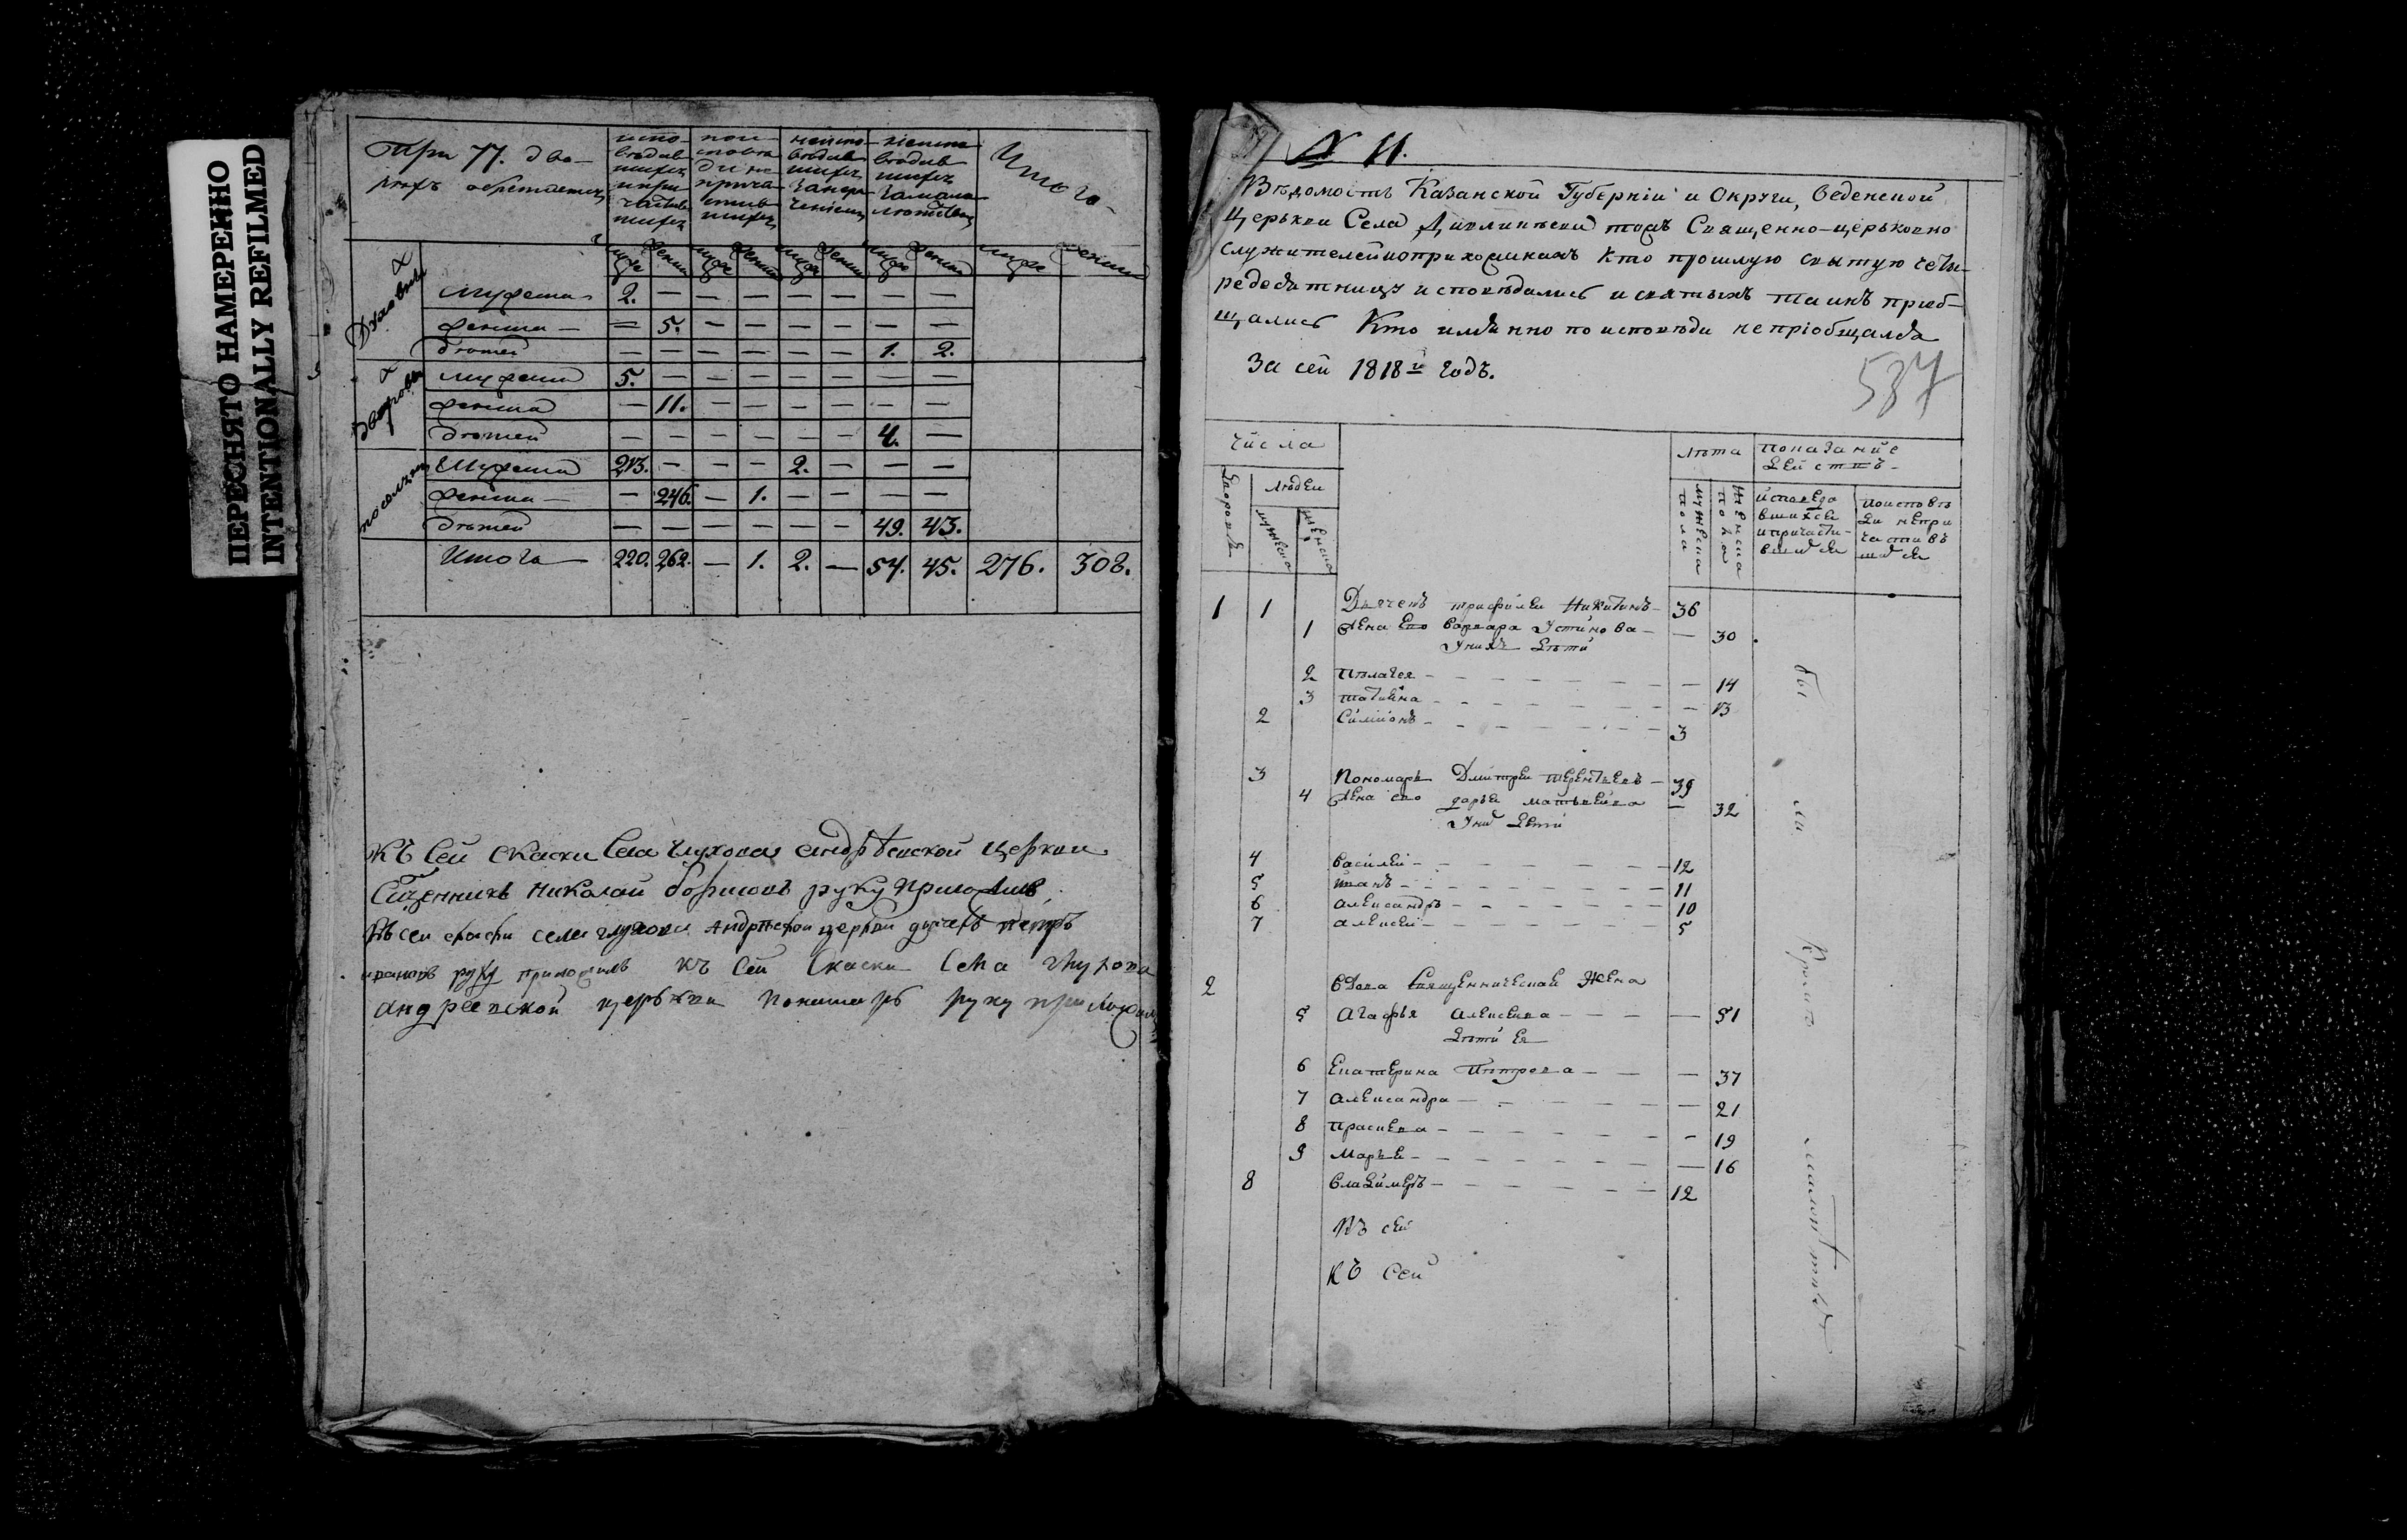 ПЕРЕСНЯТО НАМЕРЕННО
INTENTIONALLY REFILMED
При 77. дво-
рахъ обретается
испо-
ведав
шихся
и при
частив
шихся
неиспо
ведав
шихся
Итого
муже женска муже женска муже женска муже женска муже женска
Духовныхъ
Мужеска 2. — — — — — — —
женска — 5. — — — — — —
детей — — — — — — 1. 2.
дворовыхъ
мужеска 5. — — — — — — —
женска — 11. — — — — — —
детей — — — — — — 4. —
поселянъ
Мужеска 213. — — — 2. — — —
женска — 246. — 1. — — — —
детей — — — — — — 49. 43.
Итого 220. 262. — 1. 2. — 54. 45. 276. 308.
Къ сей скаски села глухова андрѣевской церкви
Сщенникъ Николай борисовъ руку приложилъ
Къ сей скаски села глухова Андрѣевской церкви дьячекъ петръ
ивановъ руку приложилъ Къ сей Скаски Села глухова
андреевской церькви пономарь руку приложилъ
N 11.
Вѣдомость Казанской Губерніи и Округи, веденской
Церькви Села тожъ Священно-церьковно
служителей и оприхожанахъ кто прошлую святую четы-
редесятницу исповѣдались и святыхъ таинъ приоб-
щались Кто имянно по исповѣди непріобщался
За сей 1818й годъ.
587
Числа
Лѣта
показание
дейстпъ-
дворовъ
людей
мужеска
женска
мужеска
пола
женска
пола
исповеда
вшихся
и причасти-
вшихся
по исповѣ
ди непри
частивъ
шихся
1 1 Дьячекъ трифилеи Никитинъ 36
1 Жена ево варвара Устинова — 30
У нихъ дѣти
2 Пѣлагея — 14
3 татияна — 13
2 Симионъ 3
3 Пономарь Дмитреи терентьевъ 39
4 Жена ево дарья матьвеива — 32
У них дети
4 василей 12
5 иванъ 11
6 александръ 10
7 алексей 5
2 вдова священническая Жена
5 Агафья алексеева — 51
дѣти ея
6 Екатерина Пѣтрова — 37
7 александра — 21
8 Прасковья — 19
9 Марья — 16
8 владимеръ 12
Къ сей
Къ Сей